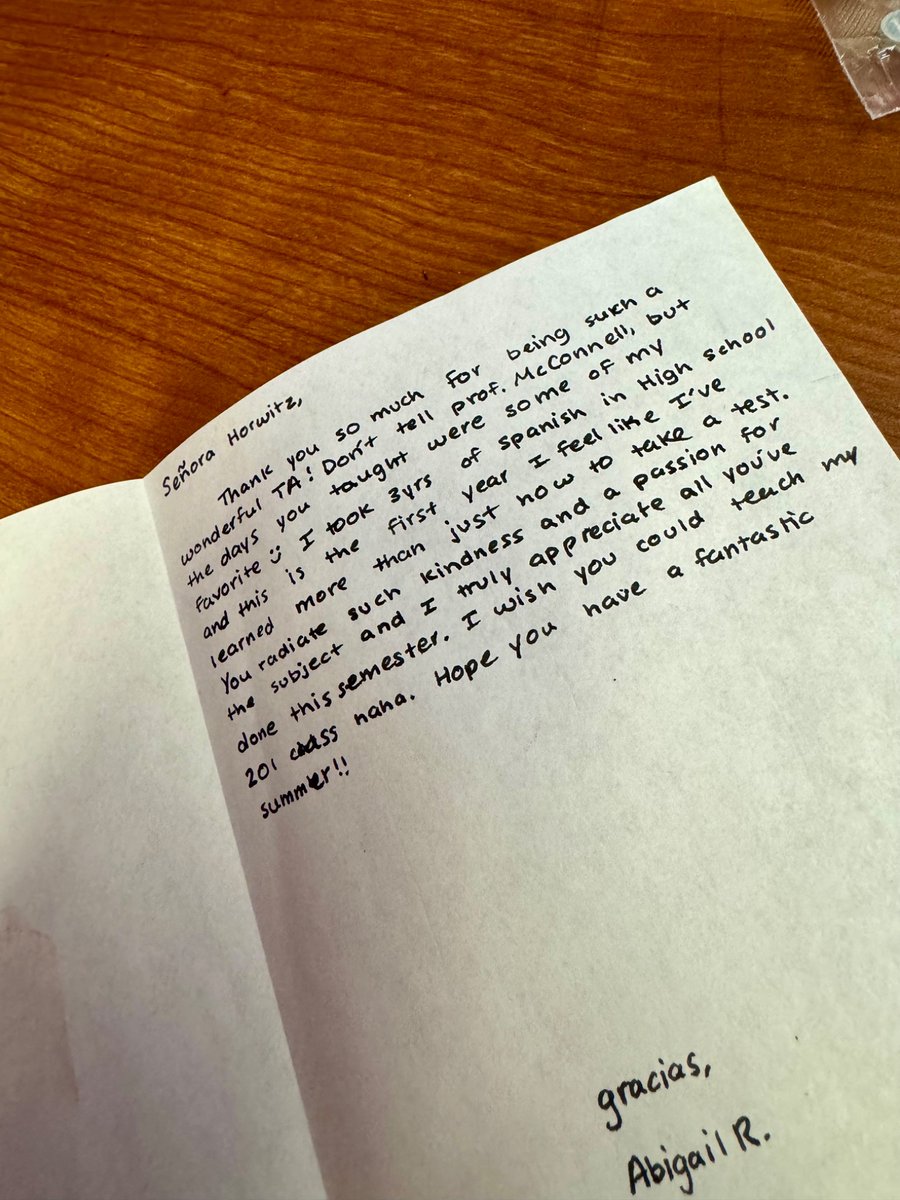 Señora Horwitz,
Thank you so much for being such a
wonderful TA! Don't tell prof. McConnell, but
the days you taught were some of my
favorite :) I took 3yrs of spanish in High school
and this is the first year I feel like I've
learned more than just how to take a test.
You radiate such kindness and a passion for
the subject and I truly appreciate all you've
done this semester. I wish you could teach my
201 class haha. Hope you have a fantastic
summer!!
gracias,
Abigail R.